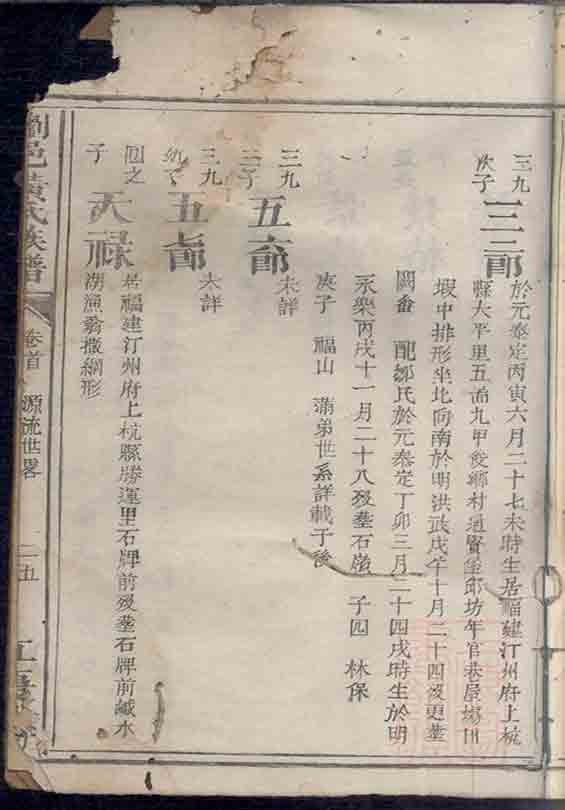 三九
次子
三郎
於元泰定丙寅六月二十七未時生居福建汀州府上杭
縣大平里五啚九甲俊鄉村通賢
邱坊年官巷屋場
蝦中排形坐北向南於明洪武戊午十月二十四歿更塟
配鄒氏於元泰定丁卯三月二十四戌時生於明
永樂丙戌十一月二十八歿塟石
子四 林保
庚子 福山 滿弟世系詳載于後
三九
五郎
未詳
三九
五郎
未詳
子
大祿
居福建汀州府上杭縣勝運里石牌前歿塟石牌前鹹水
湖漁翁撒網形
瀏邑黃氏族譜
卷首 源流世畧
二五